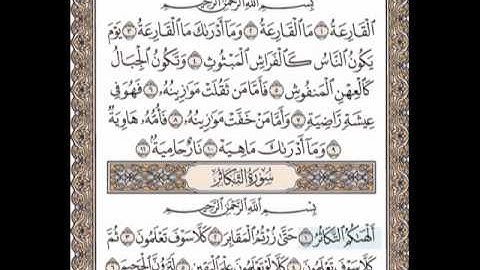 بِسْمِ ٱللَّهِ ٱلرَّحْمَٰنِ ٱلرَّحِيمِ
ٱلْقَارِعَةُ ١ مَا ٱلْقَارِعَةُ ٢ وَمَآ أَدْرَىٰكَ مَا ٱلْقَارِعَةُ ٣ يَوْمَ
يَكُونُ ٱلنَّاسُ كَٱلْفَرَاشِ ٱلْمَبْثُوثِ ٤ وَتَكُونُ ٱلْجِبَالُ
كَٱلْعِهْنِ ٱلْمَنفُوشِ ٥ فَأَمَّا مَن ثَقُلَتْ مَوَٰزِينُهُۥ ٦ فَهُوَ فِى
عِيشَةٍ رَّاضِيَةٍ ٧ وَأَمَّا مَنْ خَفَّتْ مَوَٰزِينُهُۥ ٨ فَأُمُّهُۥ هَاوِيَةٌ
٩ وَمَآ أَدْرَىٰكَ مَا هِيَهْ ١٠ نَارٌ حَامِيَةٌۢ ١١
سُورَةُ التَّكَاثُرِ
بِسْمِ ٱللَّهِ ٱلرَّحْمَٰنِ ٱلرَّحِيمِ
أَلْهَىٰكُمُ ٱلتَّكَاثُرُ ١ حَتَّىٰ زُرْتُمُ ٱلْمَقَابِرَ ٢ كَلَّا سَوْفَ تَعْلَمُونَ ٣ ثُمَّ
كَلَّا سَوْفَ تَعْلَمُونَ ٤ كَلَّا لَوْ تَعْلَمُونَ عِلْمَ ٱلْيَقِينِ ٥ لَتَرَوُنَّ ٱلْجَحِيمَ ٦